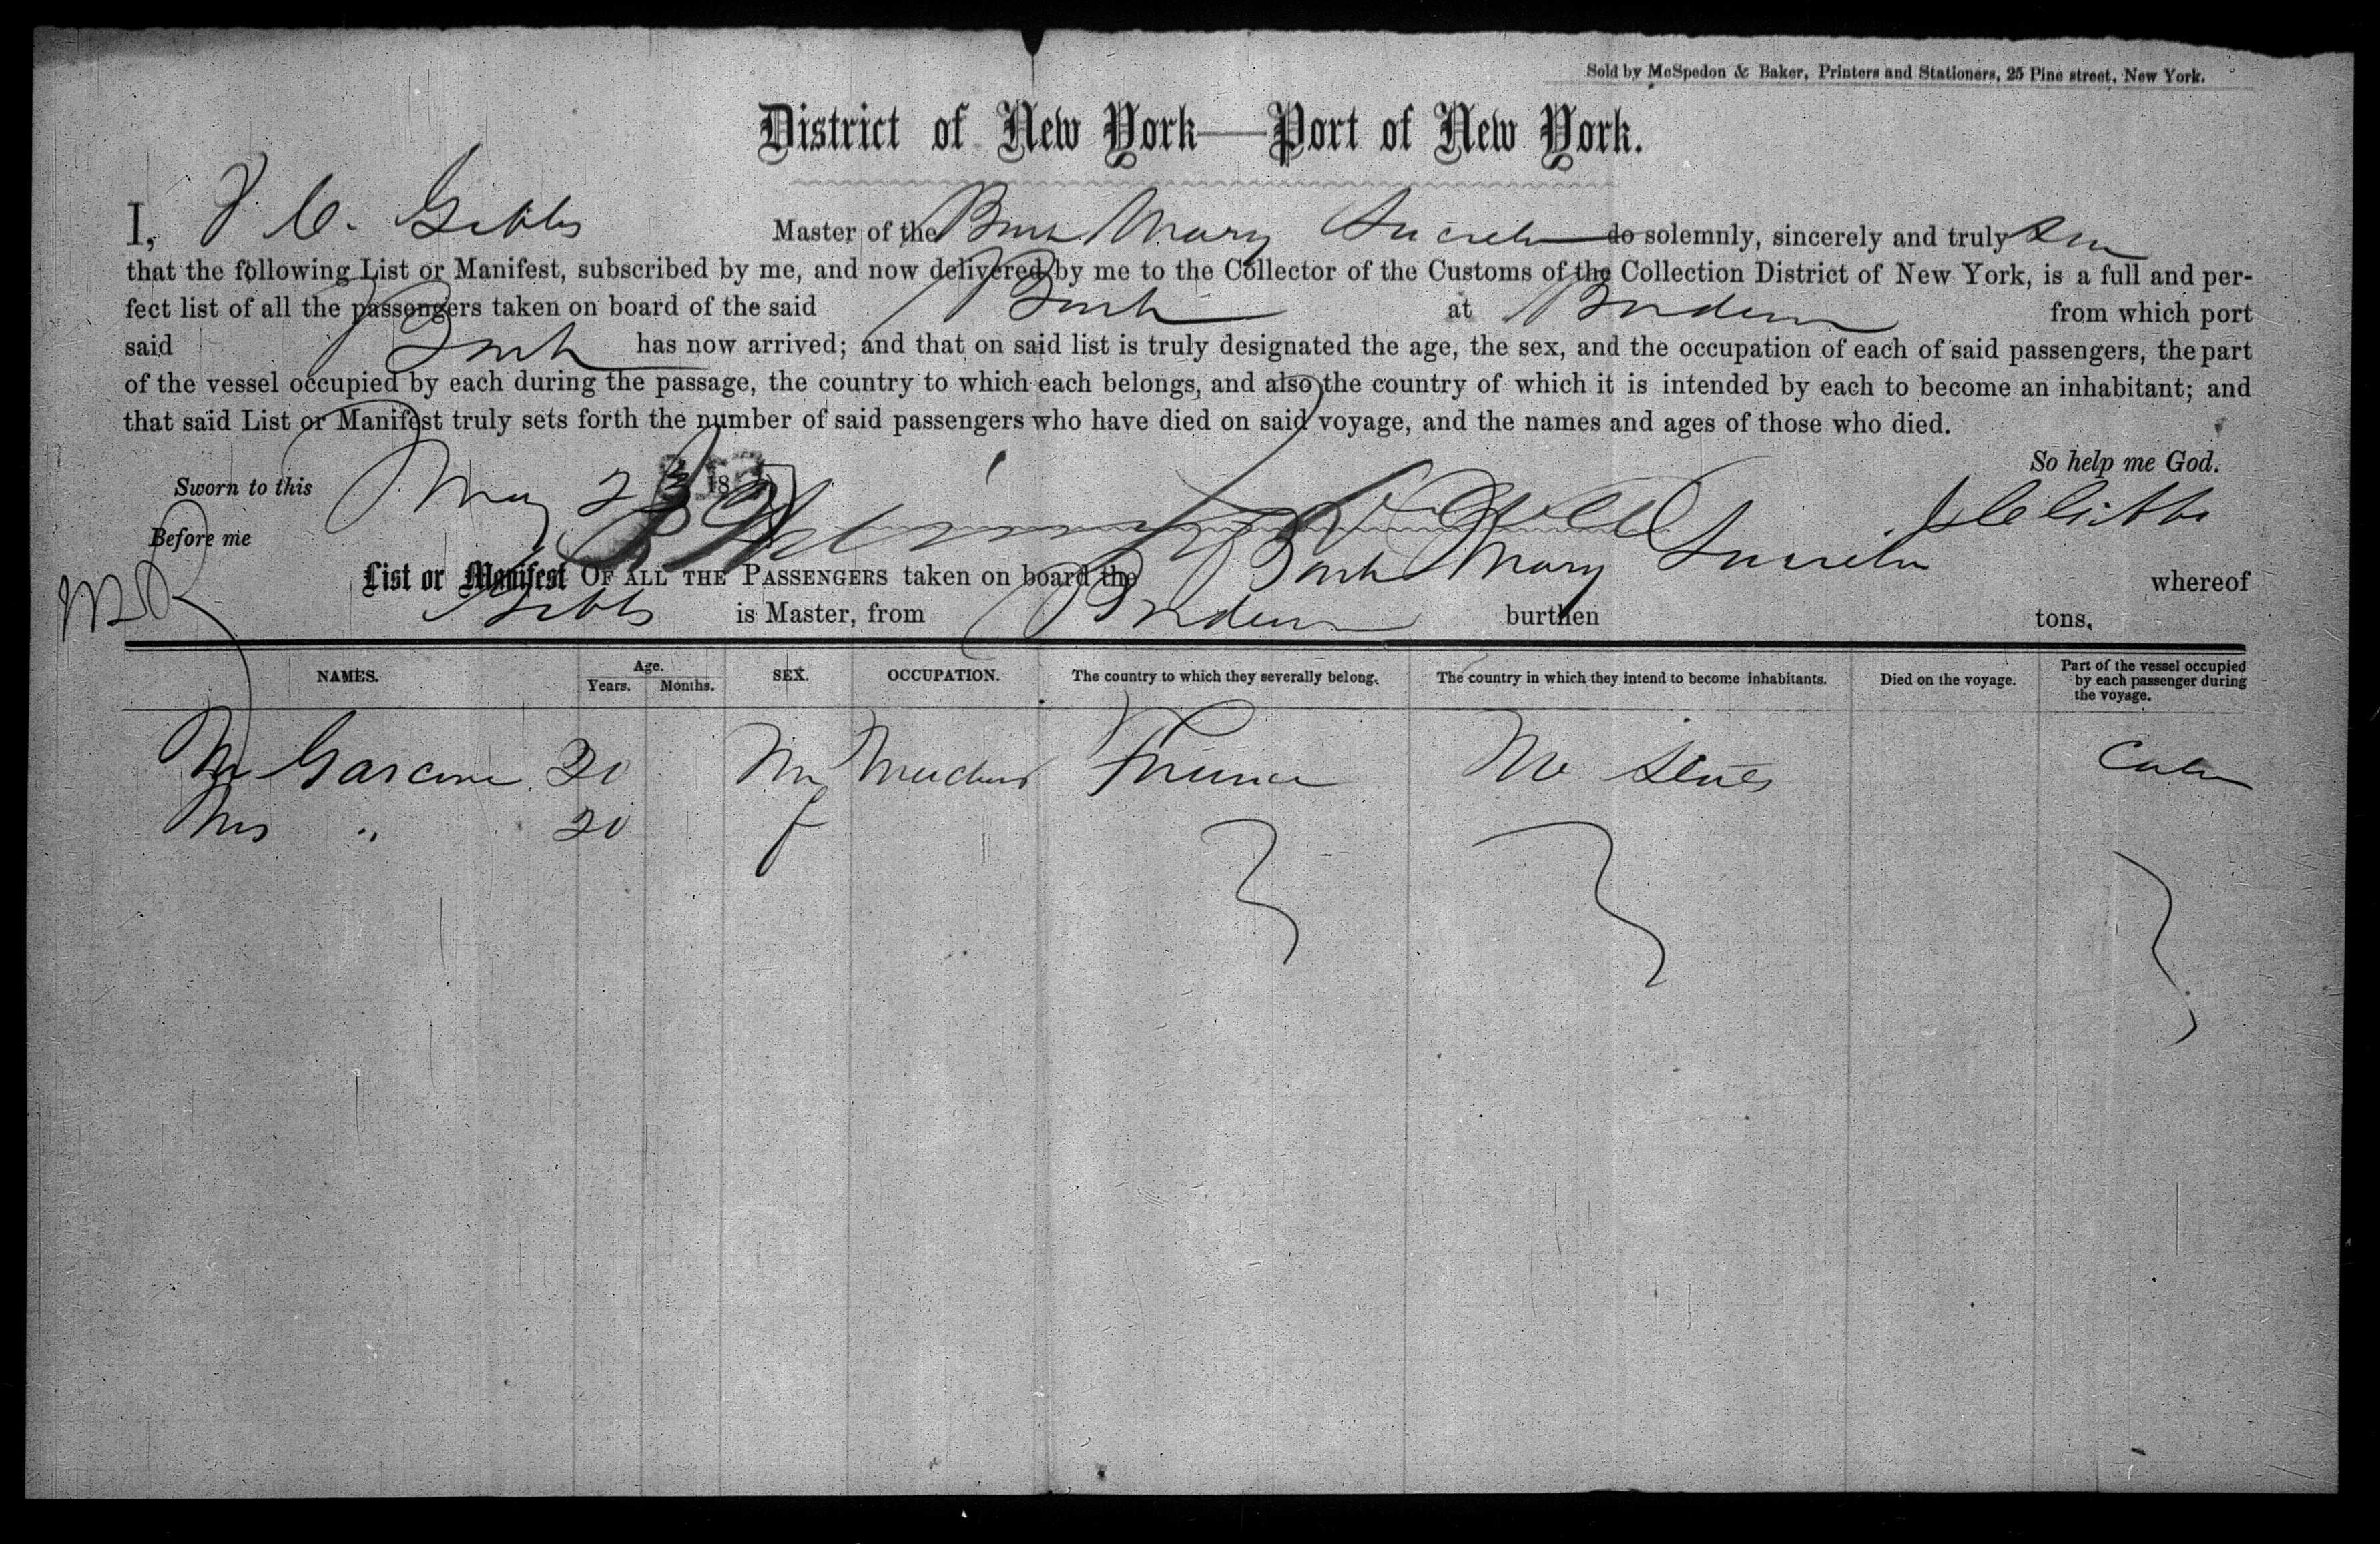 Sold by McSpedon & Baker, Printers and Stationers, 25 Pine street, New York.
District of New York—Port of New York.
I, J. C. Gibbs Master of the Bark Mary Lucretia do solemnly, sincerely and truly
that the following List or Manifest, subscribed by me, and now delivered by me to the Collector of the Customs of the Collection District of New York, is a full and per-
fect list of all the passengers taken on board of the said Bark at from which port
said Bark has now arrived; and that on said list is truly designated the age, the sex, and the occupation of each of said passengers, the part
of the vessel occupied by each during the passage, the country to which each belongs, and also the country of which it is intended by each to become an inhabitant; and
that said List or Manifest truly sets forth the number of said passengers who have died on said voyage, and the names and ages of those who died.
So help me God.
Sworn to this May 23 18
J C Gibbs
Before me
List or Manifest OF ALL THE PASSENGERS taken on board the Bark Mary Lucretia whereof
Gibbs is Master, from burthen tons.
NAMES. Age. Years. Months. SEX. OCCUPATION. The country to which they severally belong. The country in which they intend to become inhabitants. Died on the voyage. Part of the vessel occupied by each passenger during the voyage.
Mr 20 M France
Mrs " 20 f